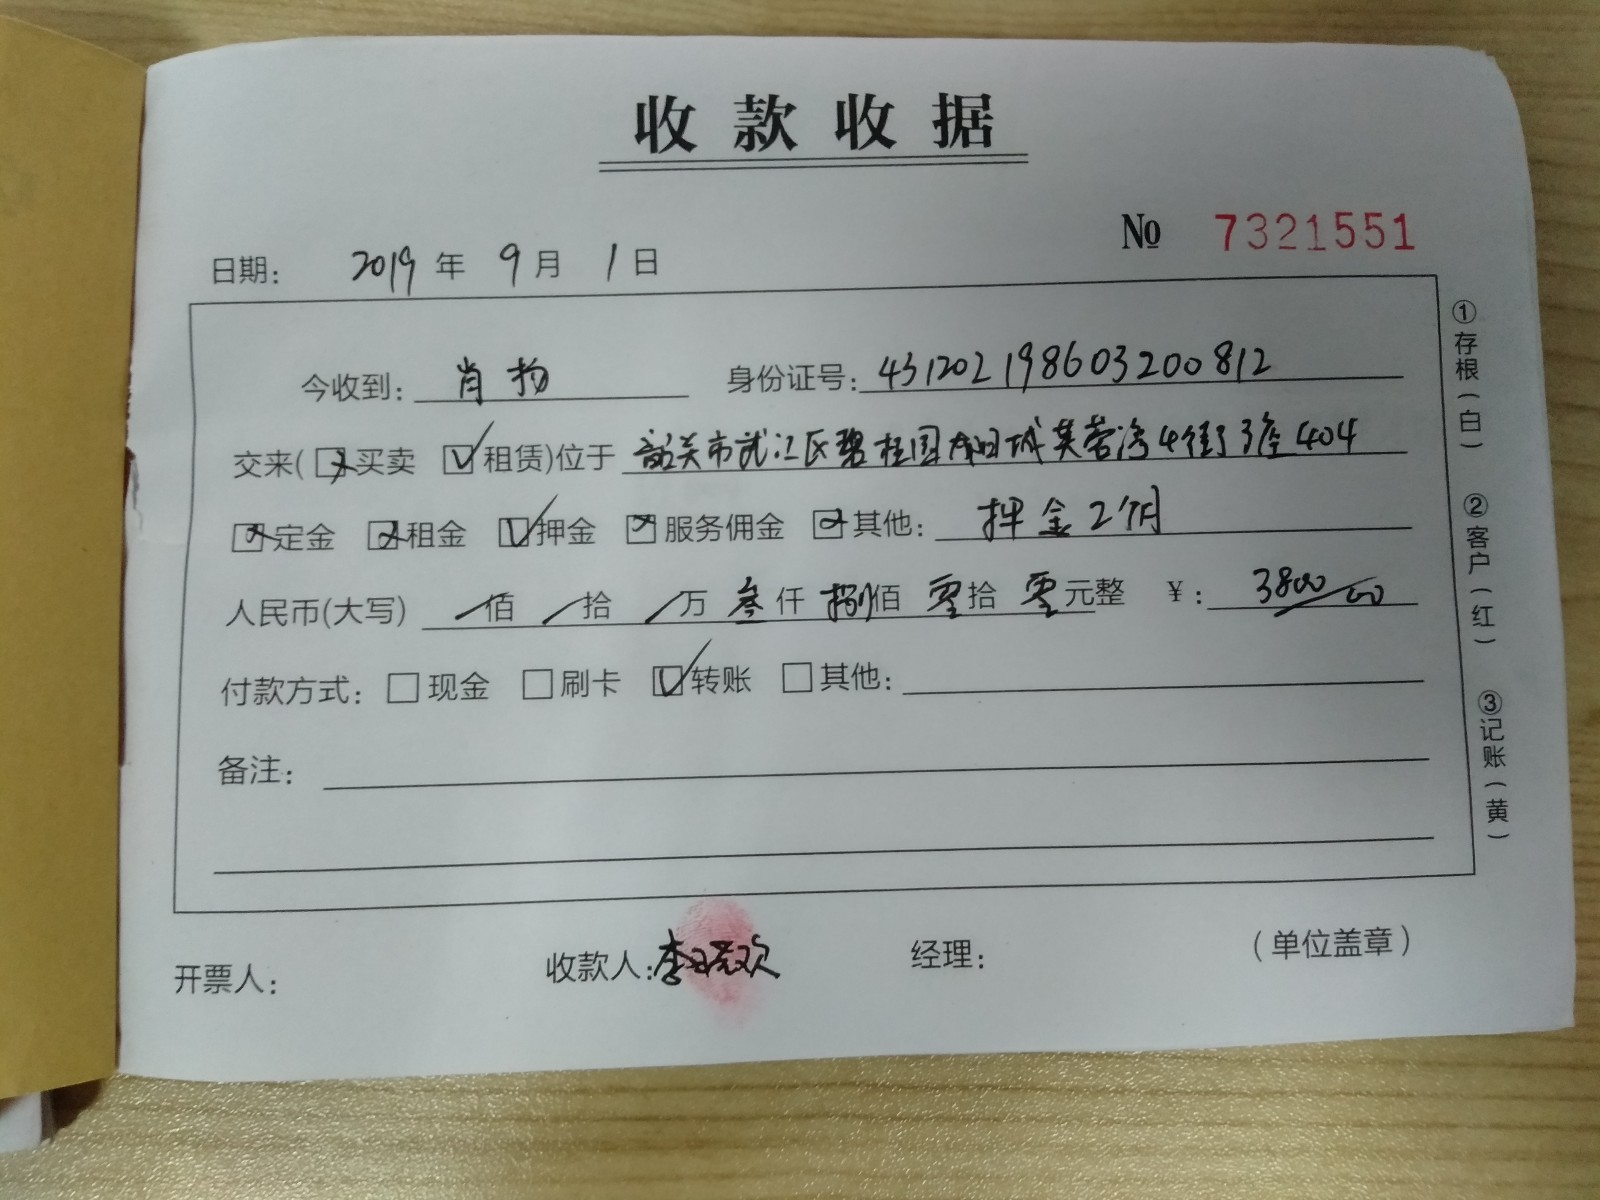 收款收据
№ 7321551
日期： 2019 年 9 月 1 日
今收到：肖扬 身份证号：431202198603200812
交来(☒买卖 ☑租赁)位于 韶关市武江区碧桂园太阳城芙蓉湾4街3座404
☒定金 ☒租金 ☑押金 ☒服务佣金 ☒其他：押金2个月
人民币(大写) /佰/拾/万叁仟捌佰零拾零元整 ￥：3800.00
付款方式：☐现金 ☐刷卡 ☑转账 ☐其他：
备注：
开票人： 收款人：李 欢 经理： （单位盖章）
①存根（白）
②客户（红）
③记账（黄）